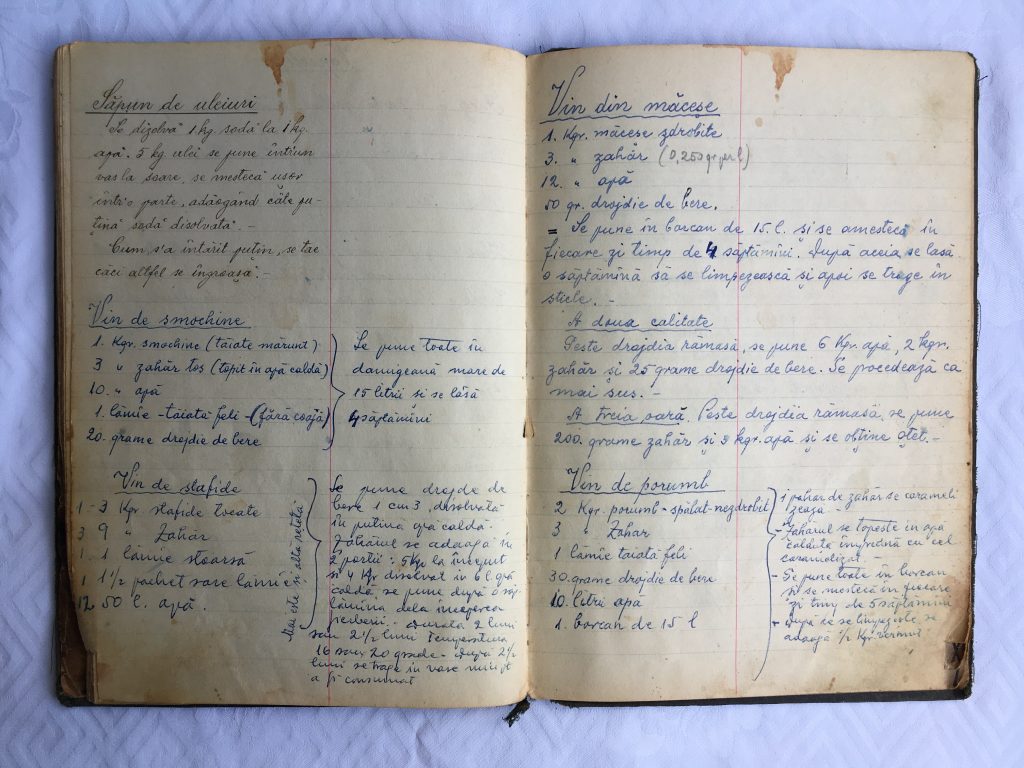 Săpun de uleiuri
Se dizolvă 1 kg. sodă la 1 kg.
apă. 5 kg. ulei se pune într'un
vas la soare, se mestecă ușor
într'o parte, adăogând câte pu-
țină sodă disolvată. -
Cum s'a întărit puțin, se tae
căci altfel se îngroașă. -
Vin de smochine
1. Kgr. smochine (tăiate mărunt)
3 " zahăr tos (topit în apă caldă)
10. " apă
1. lămîe - tăiată feli - (fără coajă)
20. grame drojdie de bere
Se pune toate în
damigeană mare de
15 litrii si se lasă
4 săptămîni
Vin de stafide
1 - 3 Kgr stafide tocate
3 9 " Zahăr
1 - 1 lămîe stoarsă
1 1 1/2 pachet sare lămîie
12 50 l. apă.
mai este și altă rețetă
Se pune drojde de
bere 1 cm 3, disolvată
în puțină apă caldă.
Zahărul se adaogă în
2 porții: 5 Kgr la început
si 4 Kgr disolvat in 6 l. apă
caldă, se pune după o săp
tămîna dela începerea
fierberii. - Durata 2 luni
sau 2 1/2 luni temperatura
16 sau 20 grade - După 2 1/2
luni se trage in vase
a fi consumat
Vin din măceșe
1. Kgr. măceșe zdrobite
3. " zahăr (0,250 gr per l)
12. " apă
50 gr. drojdie de bere.
= Se pune în borcan de 15. l. și se amestecă în
fiecare zi timp de 4 săptămîni. După aceia se lasă
o săptămînă să se limpezească și apoi se trage în
sticle. -
A doua calitate
Peste drojdia rămasă, se pune 6 Kgr. apă, 2 kgr.
zahăr și 25 grame drojdie de bere. Se procedează ca
mai sus. -
A treia oară. Peste drojdia rămasă, se pune
200. grame zahăr și 3 kgr. apă și se obține oțet. -
Vin de porumb
2 Kgr. porumb - spălat - nezdrobit
3 " Zahăr
1 lămîe taiată feli
30. grame drojdie de bere
10. litri apă
1. borcan de 15 l
1 pahar de zahăr se carameli
zează. -
- Zahărul se topește în apă
călduță împreună cu cel
caramelizat.
- Se pune toate în borcan
si se mestecă în fiecare
zi timp de 5 săptămîni
- După ce se limpezește se
adaogă 1/2 Kgr vermut